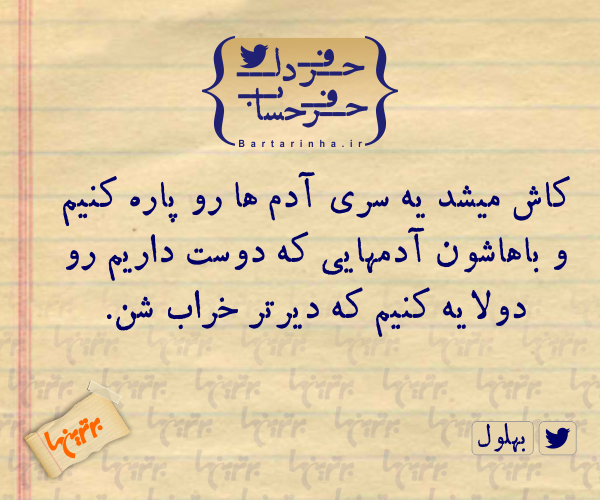 حرف دل
حرف حساب
Bartarinha.ir
کاش میشد یه سری آدم ها رو پاره کنیم
و باهاشون آدمهایی که دوست داریم رو
دولایه کنیم که دیرتر خراب شن.
بهلول
برترین‌ها